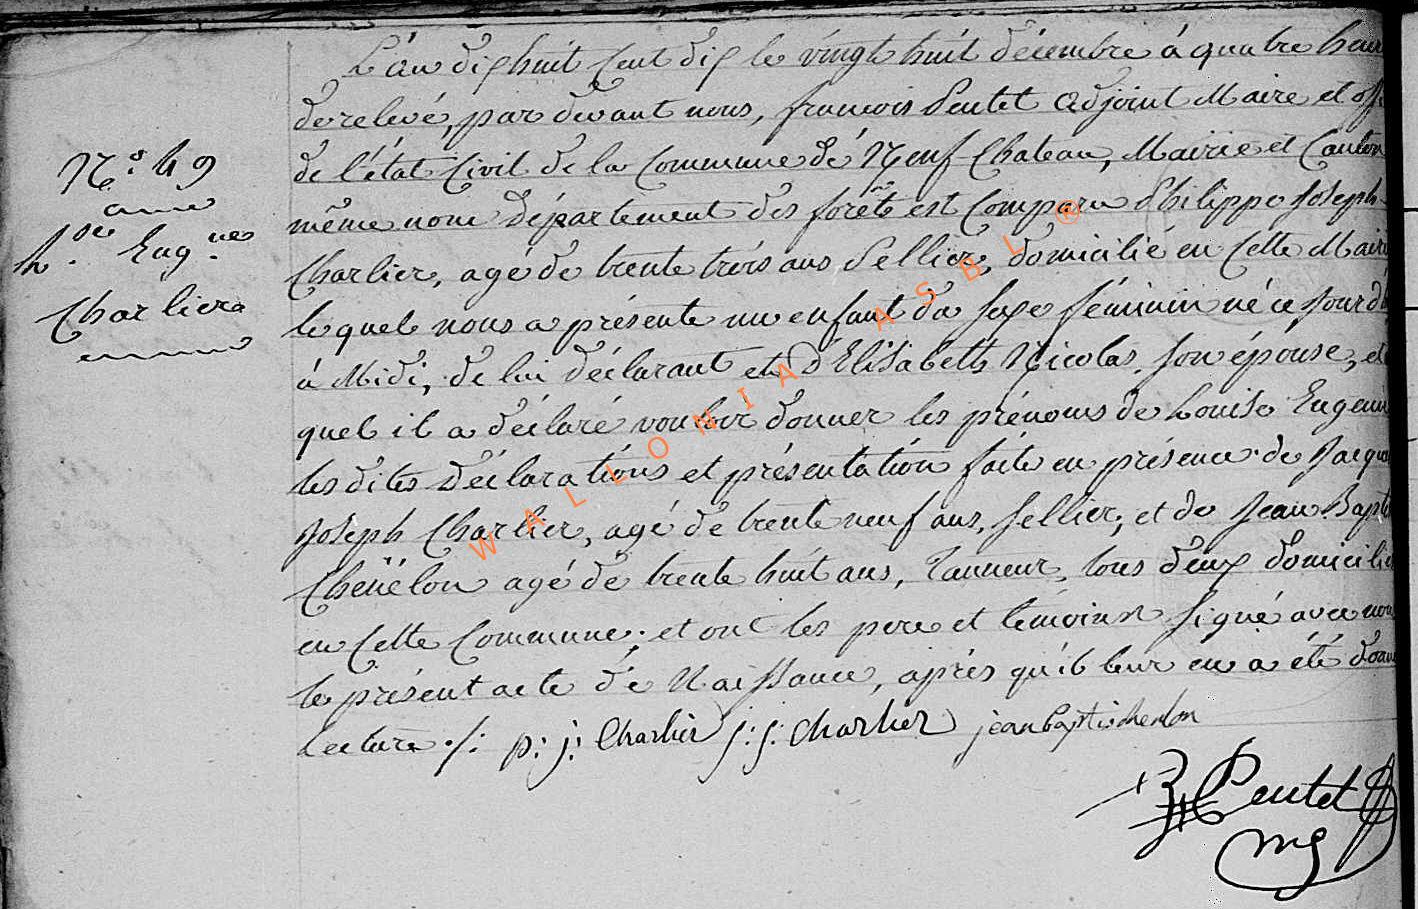 N.º 49
L.se Eug.nie
Charlier
L'an dix huit cent dix le vingt huit décembre à quatre heur
de relevé, par devant nous, francois Pentet adjoint Maire et off
de l'état Civil de la Commune de Neuf-Chateau, Mairie et Canton
même nom Département des forêts est Comparu Philippe Joseph
Charlier, agé de trente trois ans Sellier, domicilié en Cette Mairi
lequel nous a présenté un enfant du sexe féminin né ce jour d'h
à Midi, de lui déclarant et d'Elisabeth Nicolas, son épouse, et
quel il a déclaré vouloir donner les prénoms de Louise Eugeni
les dites Déclarations et présentation faite en présence de Jacqu
Joseph Charlier, agé de trente neuf ans, sellier, et de Jean Bapti
Chenêlon agé de trente huit ans, Tanneur, tous deux domicilié
en Cette Commune; et ont les pere et témoins signé avec nou
le présent acte de Naissance, après qu'il leur en a été donn
Lecture ./.
p: j: Charlier j: j: charlier jean baptis chenlon
Pentet
WALLONIA ASBL ®